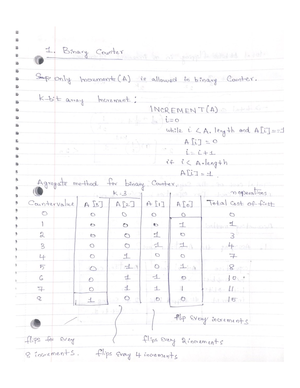 1. Binary Counter
Supp only Increments(A) is allowed in binary Counter.
k-bit array Increment:
INCREMENT(A)
i=0
while i < A.length and A[i]==1
A[i]=0
i=i+1
if i < A.length
A[i]=1
Agregate method for binary Counter.
k=3 n operations
Countervalue A[3] A[2] A[1] A[0] Total Cost of flips
0 0 0 0 0 0
1 0 0 0 1 1
2 0 0 1 0 3
3 0 0 1 1 4
4 0 1 0 0 7
5 0 1 0 1 8
6 0 1 1 0 10
7 0 1 1 1 11
8 1 0 0 0 15
flip every increments
flips in every flips every 2 increments
8 increments. flips every 4 increments